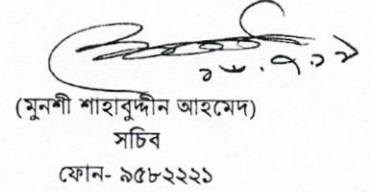 (মুনশী শাহাবুদ্দীন আহমেদ)
সচিব
ফোন- ৯৫৮২২২১